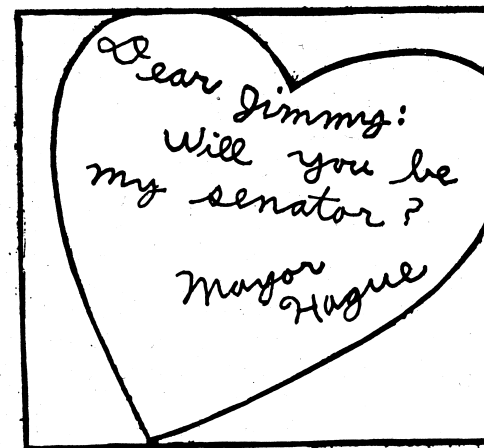 Dear Jimmy:
Will you be
my senator?
Mayor
Hague